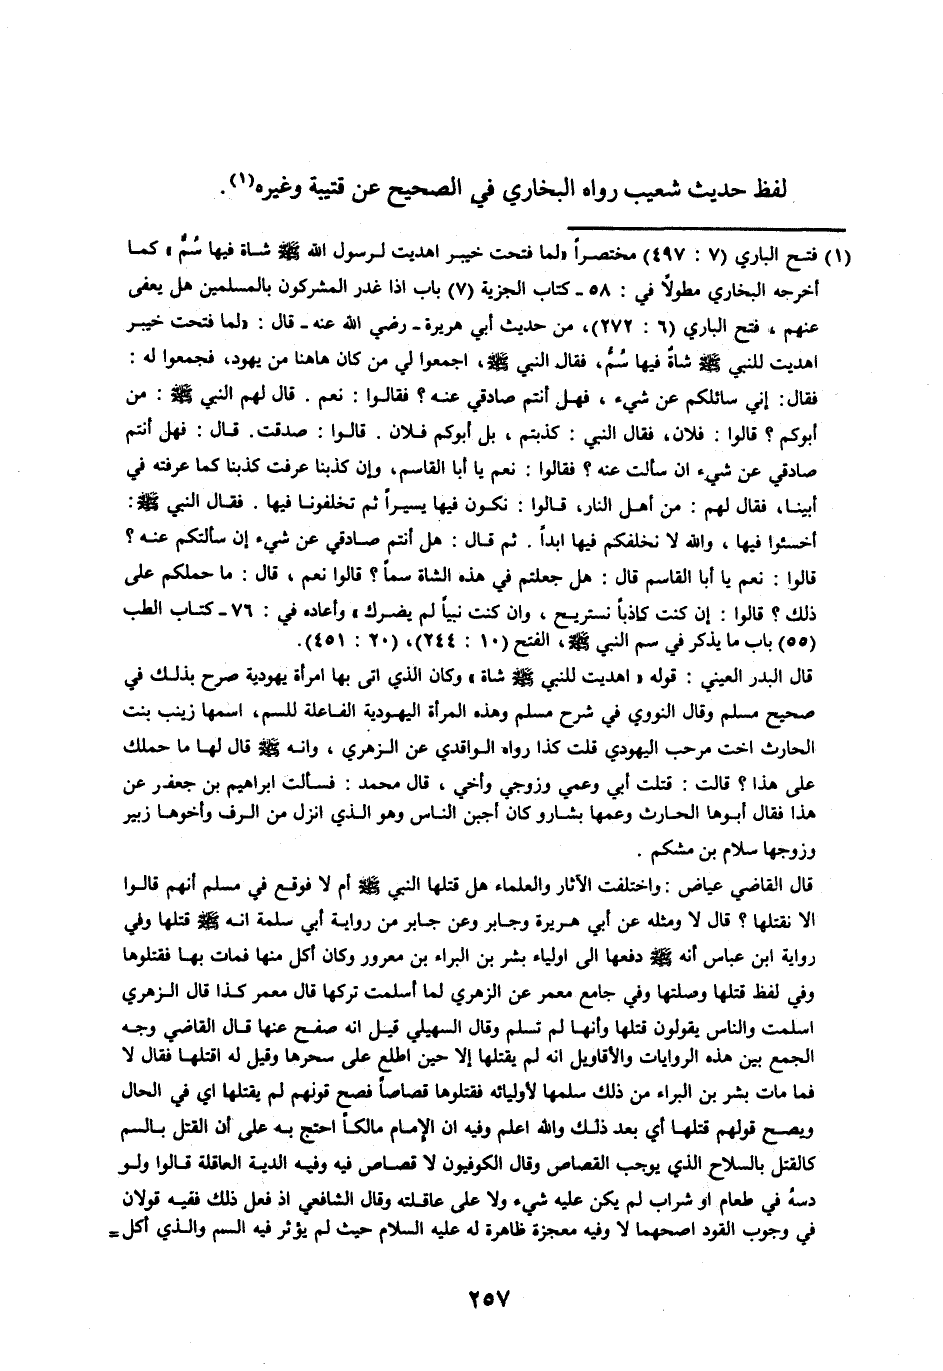 لفظ حديث شعيب رواه البخاري في الصحيح عن قتيبة وغيره(١).
(١) فتح الباري (٧ : ٤٩٧) مختصراً «لما فتحت خيبر اهديت لرسول الله ﷺ شاة فيها سُمٌّ» كما
أخرجه البخاري مطولاً في : ٥٨ - كتاب الجزية (٧) باب اذا غدر المشركون بالمسلمين هل يعفى
عنهم ، فتح الباري (٦ : ٢٧٢)، من حديث أبي هريرة - رضي الله عنه - قال : «لما فتحت خيبر
اهديت للنبي ﷺ شاةٌ فيها سُمٌّ، فقال النبي ﷺ، اجمعوا لي من كان هاهنا من يهود، فجمعوا له :
فقال: إني سائلكم عن شيء ، فهل أنتم صادقي عنه ؟ فقالوا : نعم . قال لهم النبي ﷺ : من
أبوكم ؟ قالوا : فلان، فقال النبي : كذبتم ، بل أبوكم فلان . قالوا : صدقت. قال : فهل أنتم
صادقي عن شيء ان سألت عنه ؟ فقالوا : نعم يا أبا القاسم، وإن كذبنا عرفت كذبنا كما عرفته في
أبينا، فقال لهم : من أهل النار، قالوا : نكون فيها يسيراً ثم تخلفونا فيها . فقال النبي ﷺ:
أخسئوا فيها ، والله لا نخلفكم فيها ابداً . ثم قال : هل أنتم صادقي عن شيء إن سألتكم عنه ؟
قالوا : نعم يا أبا القاسم قال : هل جعلتم في هذه الشاة سماً ؟ قالوا نعم ، قال : ما حملكم على
ذلك ؟ قالوا : إن كنت كاذباً نستريح ، وان كنت نبياً لم يضرك» وأعاده في : ٧٦ - كتاب الطب
(٥٥) باب ما يذكر في سم النبي ﷺ، الفتح (١٠ : ٢٤٤)، (٢٠ : ٤٥١).
قال البدر العيني : قوله «اهديت للنبي ﷺ شاة» وكان الذي اتى بها امرأة يهودية صرح بذلك في
صحيح مسلم وقال النووي في شرح مسلم وهذه المرأة اليهودية الفاعلة للسم، اسمها زينب بنت
الحارث اخت مرحب اليهودي قلت كذا رواه الواقدي عن الزهري ، وانه ﷺ قال لها ما حملك
على هذا ؟ قالت : قتلت أبي وعمي وزوجي وأخي ، قال محمد : فسألت ابراهيم بن جعفر عن
هذا فقال أبوها الحارث وعمها بشار وكان أجبن الناس وهو الذي انزل من الرف وأخوها زبير
وزوجها سلام بن مشكم .
قال القاضي عياض : واختلفت الآثار والعلماء هل قتلها النبي ﷺ أم لا فوقع في مسلم أنهم قالوا
الا نقتلها ؟ قال لا ومثله عن أبي هريرة وجابر وعن جابر من رواية أبي سلمة انه ﷺ قتلها وفي
رواية ابن عباس أنه ﷺ دفعها الى اولياء بشر بن البراء بن معرور وكان أكل منها فمات بها فقتلوها
وفي لفظ قتلها وصلبها وفي جامع معمر عن الزهري لما أسلمت تركها قال معمر كذا قال الزهري
اسلمت والناس يقولون قتلها وأنها لم تسلم وقال السهيلي قيل انه صفح عنها قال القاضي وجه
الجمع بين هذه الروايات والأقاويل انه لم يقتلها إلا حين اطلع على سحرها وقيل له اقتلها فقال لا
فما مات بشر بن البراء من ذلك سلمها لأوليائه فقتلوها قصاصاً فصح قولهم لم يقتلها اي في الحال
ويصح قولهم قتلها أي بعد ذلك والله اعلم وفيه ان الإمام مالكاً احتج به على أن القتل بالسم
كالقتل بالسلاح الذي يوجب القصاص وقال الكوفيون لا قصاص فيه وفيه الدية العاقلة قالوا ولو
دسهُ في طعام او شراب لم يكن عليه شيء ولا على عاقلته وقال الشافعي اذ فعل ذلك ففيه قولان
في وجوب القود اصحهما لا وفيه معجزة ظاهرة له عليه السلام حيث لم يؤثر فيه السم والذي أكل =
٢٥٧